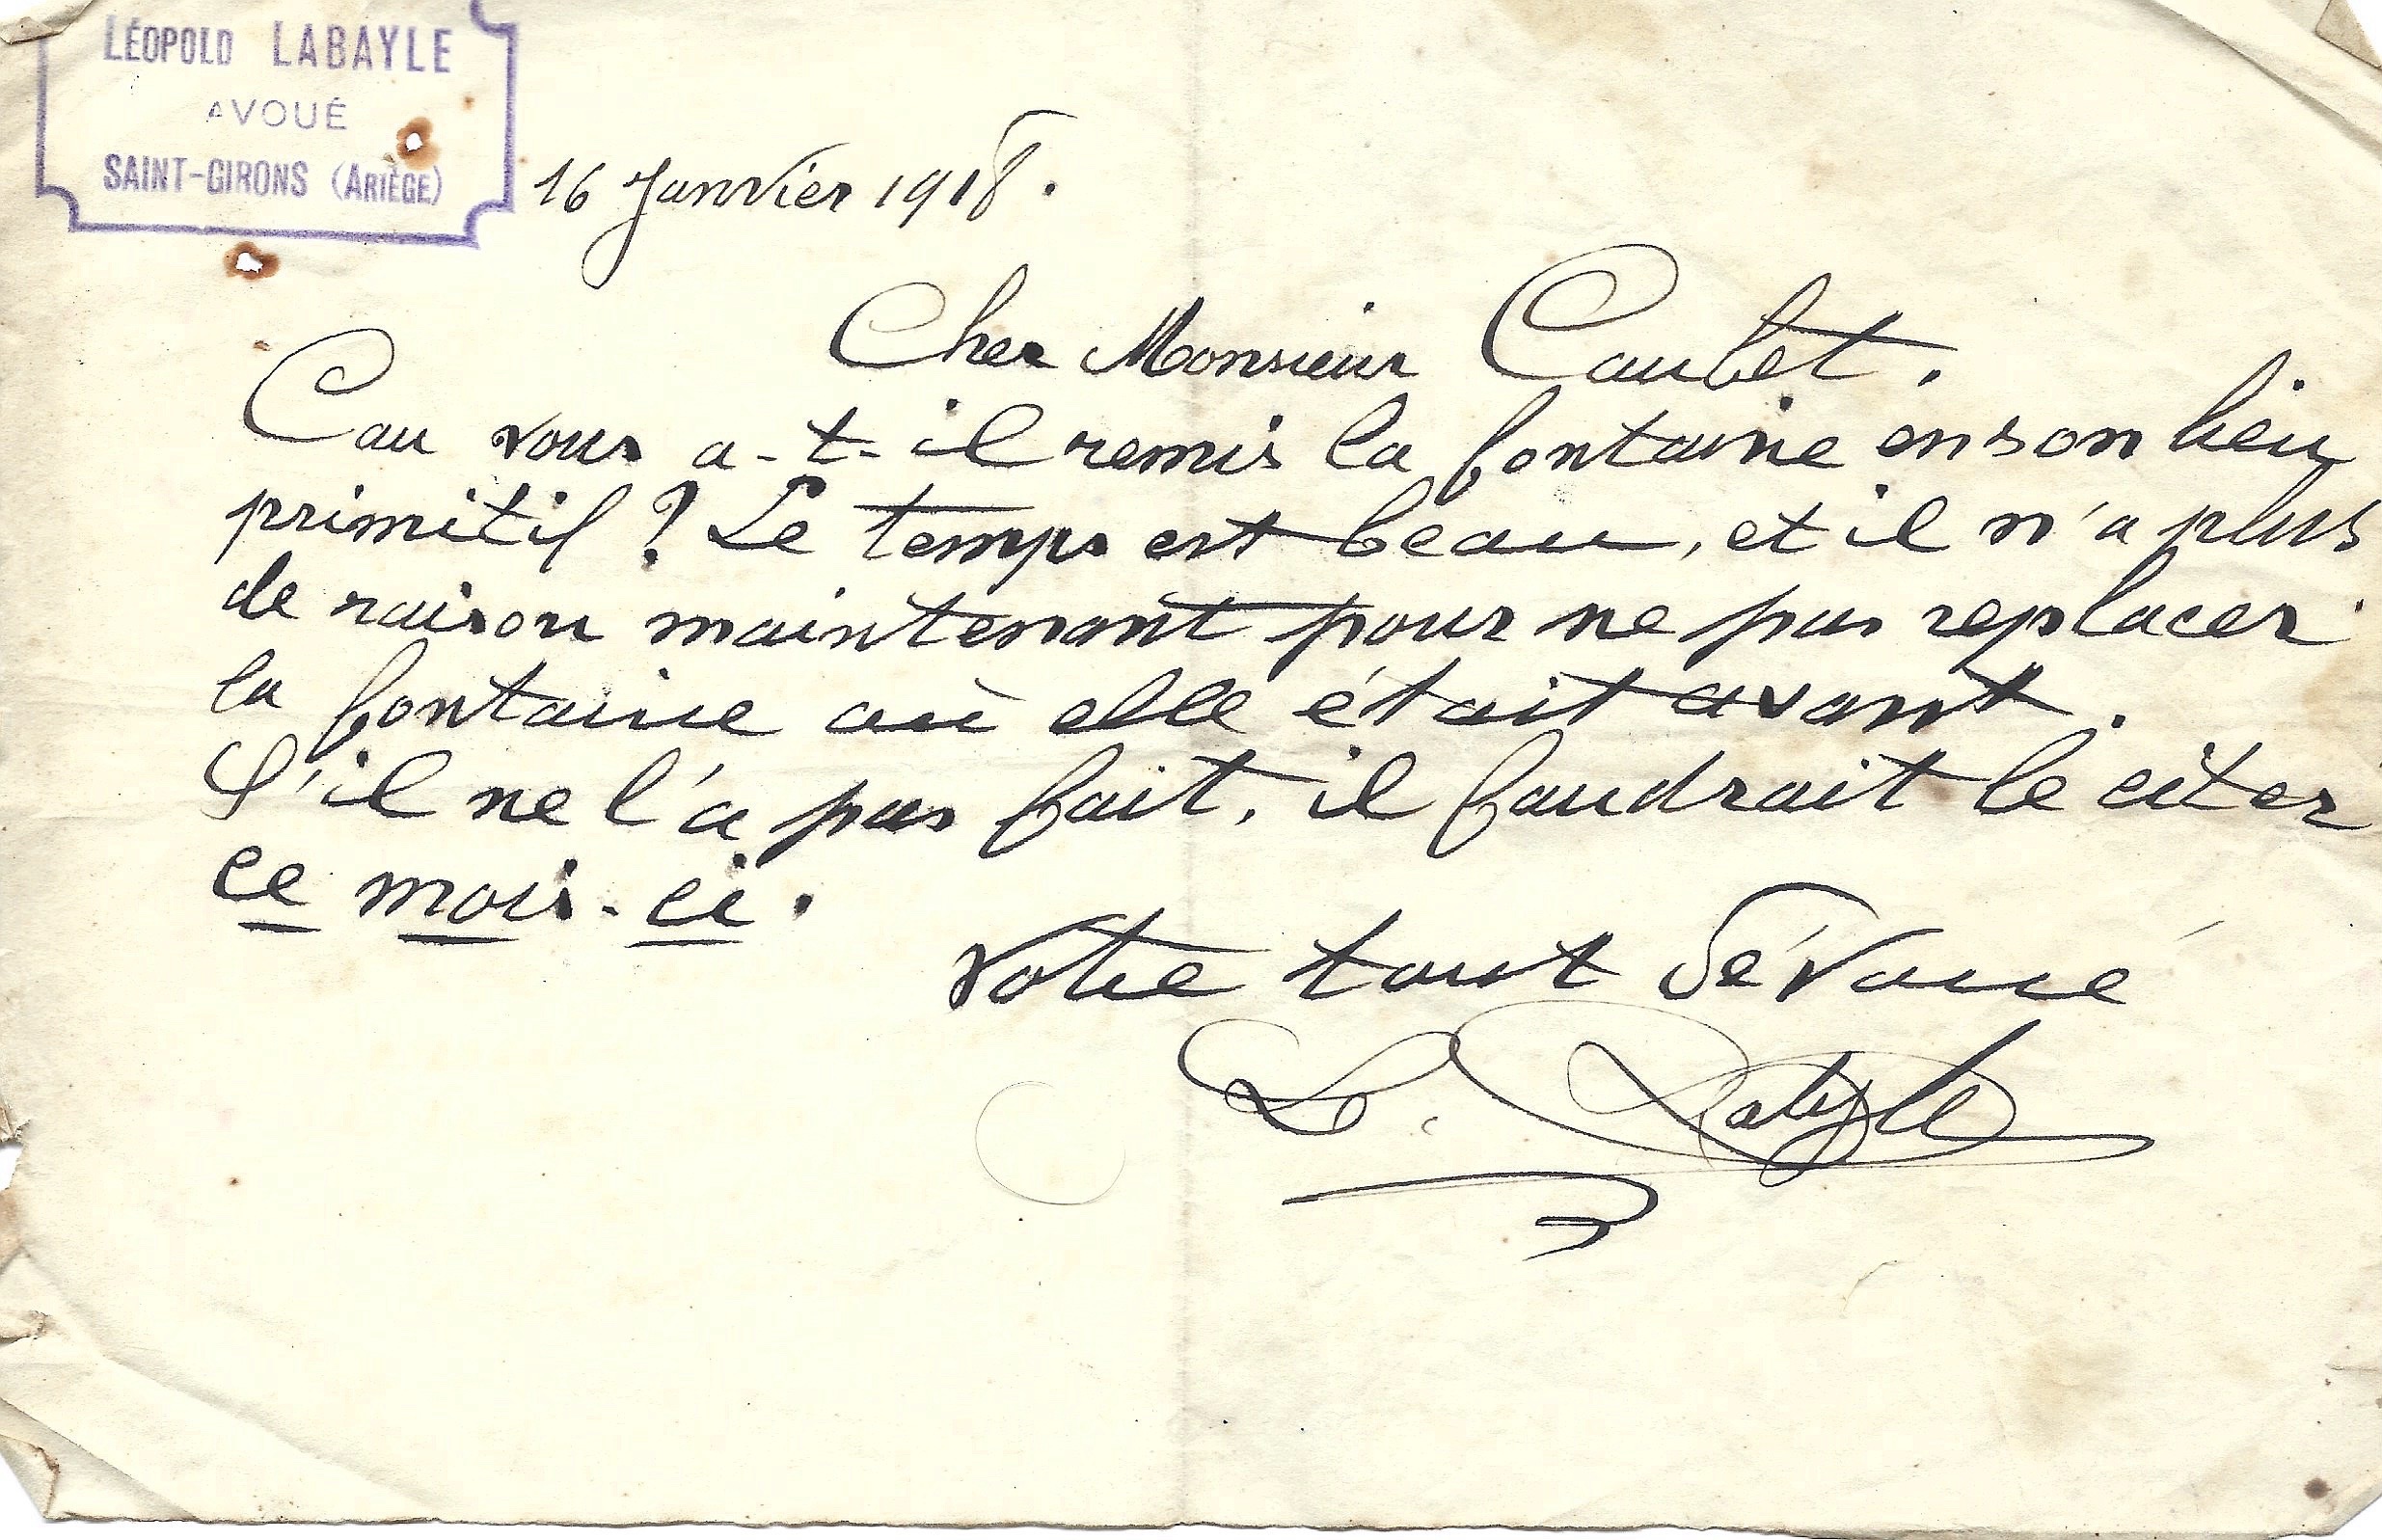 LÉOPOLD LABAYLE
AVOUÉ
SAINT-GIRONS (ARIÈGE)
16 Janvier 1918.
Cher Monsieur Caubet.
Cau vous a-t-il remis la fontaine en son lieu
primitif ? Le temps est beau, et il n'a plus
de raison maintenant pour ne pas replacer
la fontaine où elle était avant.
S'il ne l'a pas fait, il faudrait le citer
ce mois-ci.
Votre tout dévoué
L. Labayle